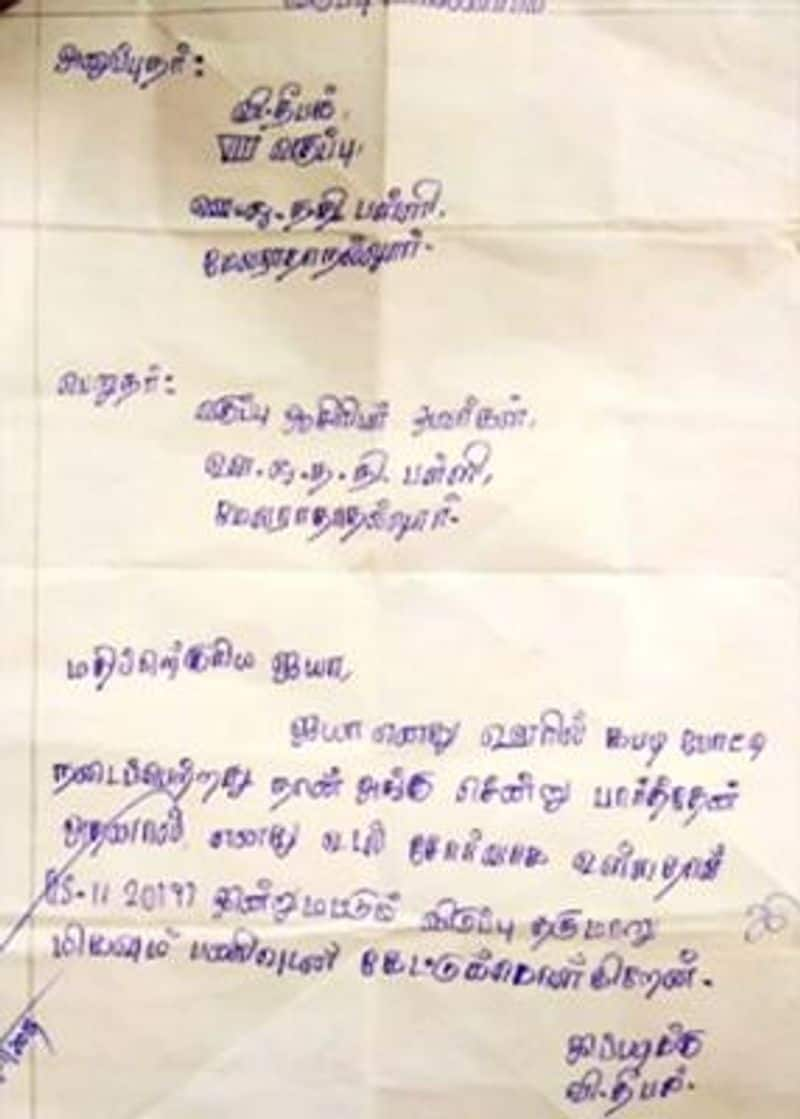 அனுப்புநர்:
வி.தீபக்,
VIII வகுப்பு,
ஊ.ஒ.ந.நி. பள்ளி.
மேலராதாநல்லூர்.
பெறுநர்:
வகுப்பு ஆசிரியர் அவர்கள்,
ஊ.ஒ.ந.நி. பள்ளி,
மேலராதாநல்லூர்.
மதிப்பிற்குரிய ஐயா,
ஐயா எனது ஊரில் கபடி போட்டி
நடைப்பெற்றது நான் அங்கு சென்று பார்த்தேன்
அதனால் எனது உடல் சோர்வாக உள்ளதால்
இன்று மட்டும் விடுப்பு தருமாறு
மிகவும் பணிவுடன் கேட்டுக்கொள்கிறேன்.
இப்படிக்கு
வி.தீபக்.